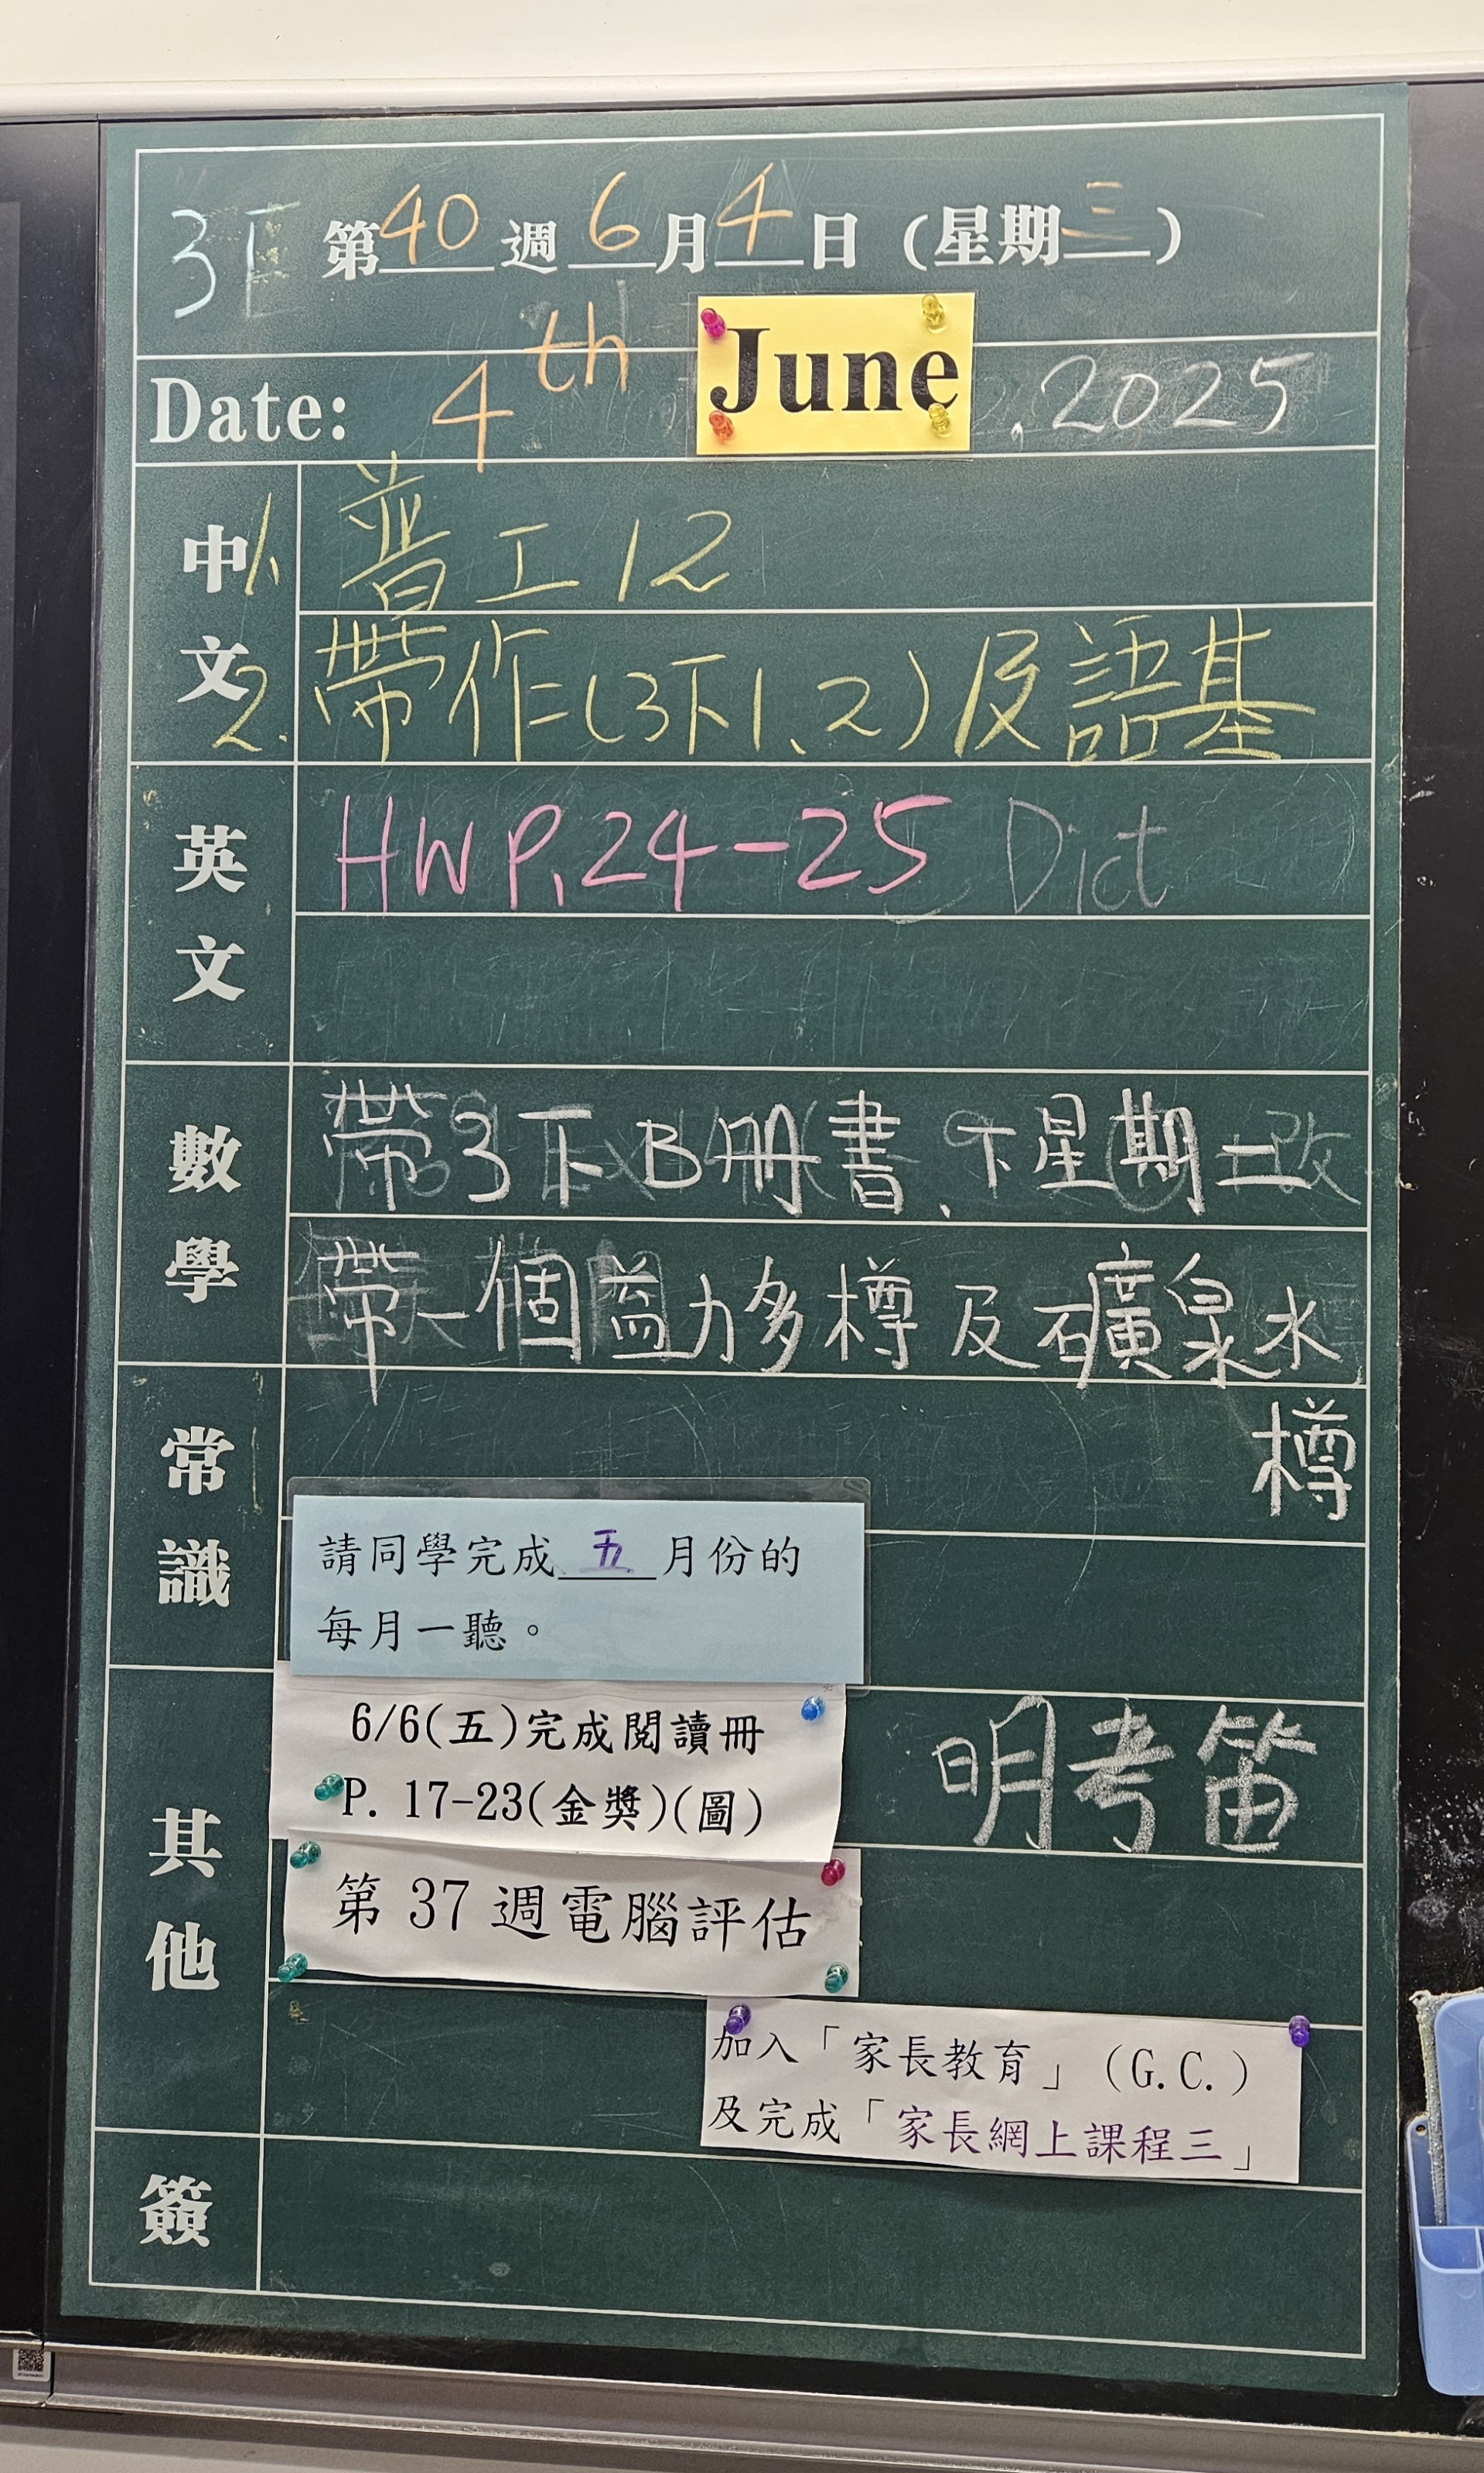 3E 第40週6月4日（星期三）
Date: 4th June, 2025
中文
1. 普工12
2. 帶作=(3下1、2)及語基
英文
HW P.24-25 Dict
數學
帶3下B冊書、下星期二
帶一個益力多樽及礦泉水
樽
常識
請同學完成五月份的
每月一聽。
其他
6/6(五)完成閱讀冊
P. 17-23(金獎)(圖)
明考笛
第 37 週電腦評估
加入「家長教育」（G.C.）
及完成「家長網上課程三」
簽